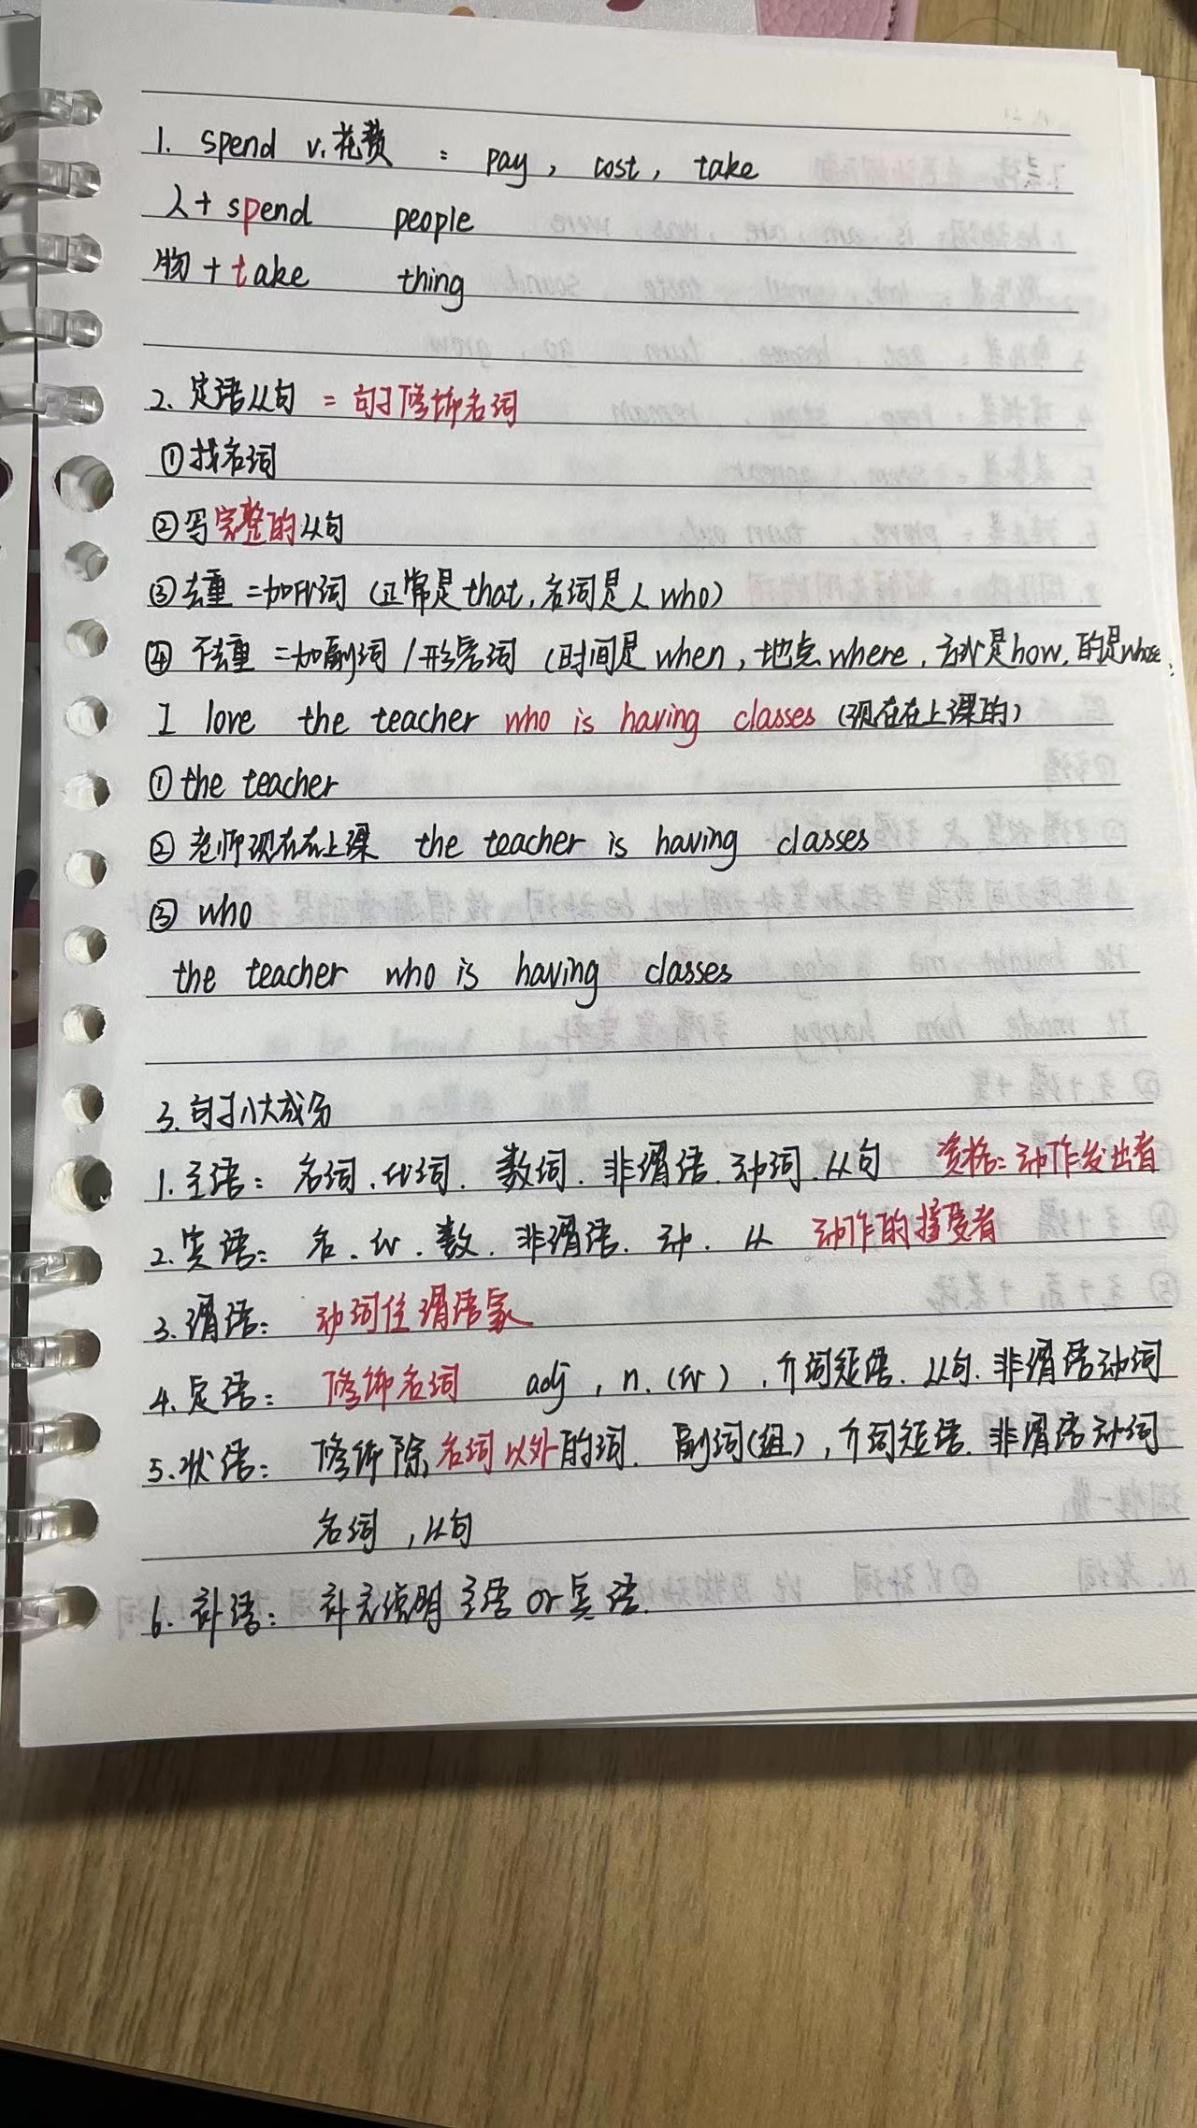 1. spend v.花费 : pay, cost, take
人+spend people
物+take thing
2. 定语从句 = 句子修饰名词
①找名词
②写完整的从句
③去重=加代词 (正常是that,名词是人who)
④不去重=加副词/形容词 (时间是when,地点where,方式是how,的是whose
I love the teacher who is having classes (现在在上课的)
①the teacher
②老师现在在上课 the teacher is having classes
③who
the teacher who is having classes
3.句子八大成分
1.主语: 名词.代词.数词.非谓语.动词.从句 资格:动作发出者
2.宾语: 名.代.数.非谓语.动.从 动作的接受者
3.谓语: 动词住谓语家
4.定语: 修饰名词 adj, n.(代),介词短语.从句.非谓语动词
5.状语: 修饰除名词以外的词. 副词(组),介词短语.非谓语动词
名词,从句
6.补语: 补充说明主语or宾语.